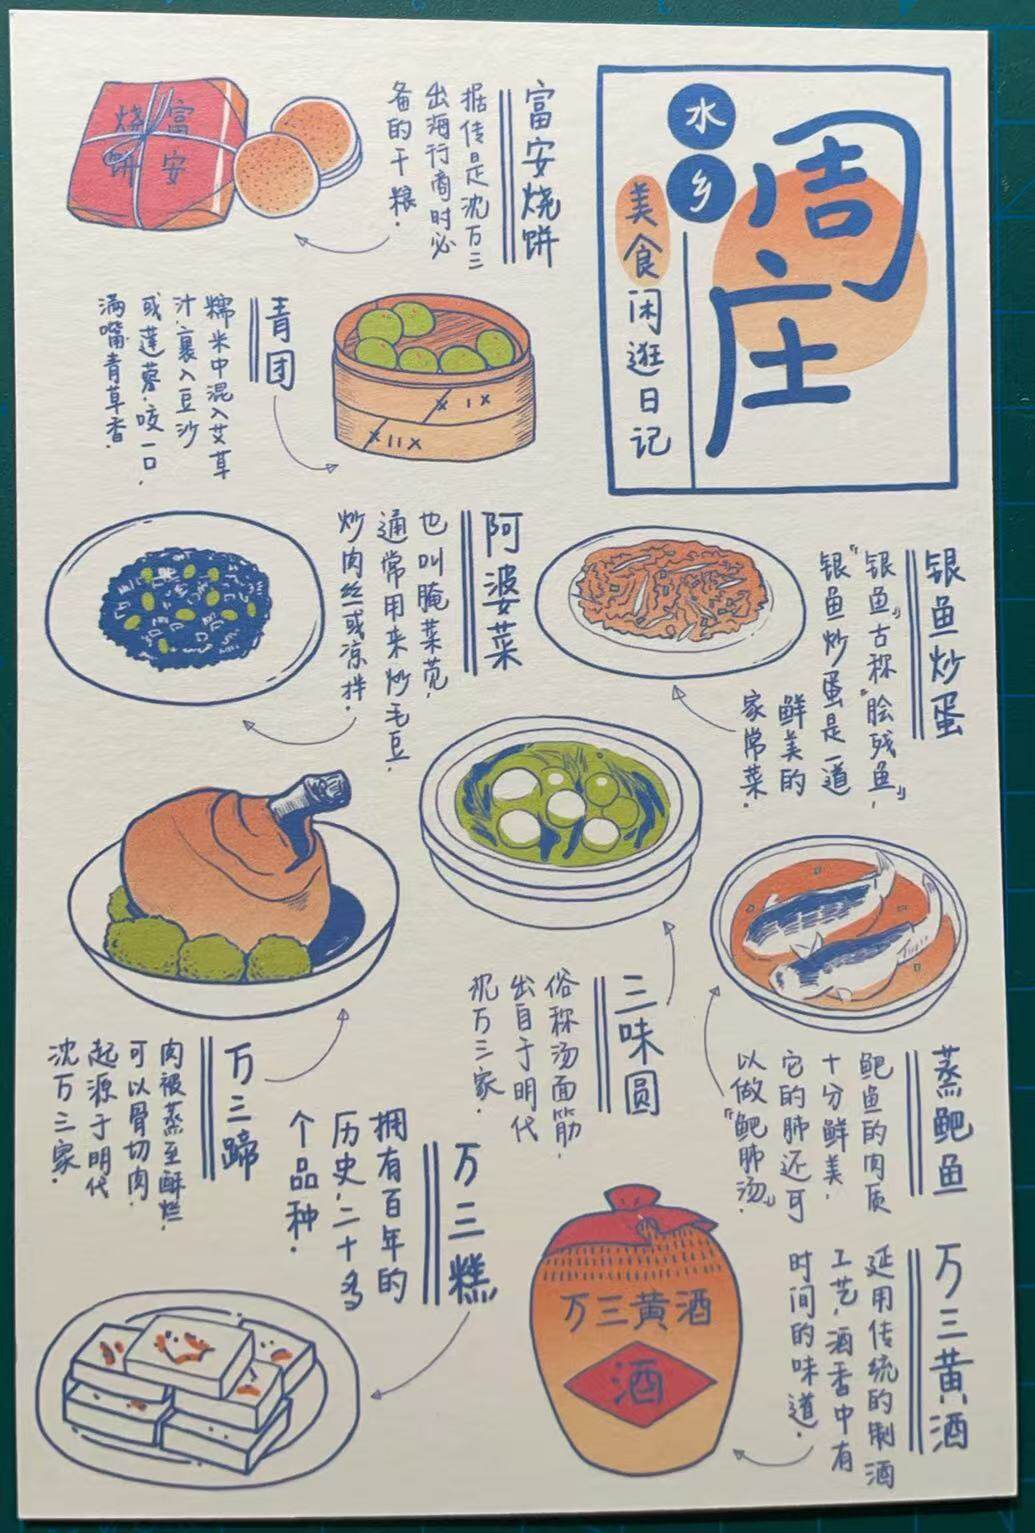 水乡
周庄
美食闲逛日记
富安烧饼
据传是沈万三
出海行商时必
备的干粮.
富安
烧饼
青团
糯米中混入艾草
汁,裹入豆沙
或莲蓉.咬一口,
满嘴青草香.
银鱼炒蛋
“银鱼”古称“脍残鱼”,
银鱼炒蛋是一道
鲜美的
家常菜.
阿婆菜
也叫腌菜苋,
通常用来炒毛豆,
炒肉丝或凉拌.
三味圆
俗称汤面筋,
出自于明代
沈万三家.
蒸鲃鱼
鲃鱼的肉质
十分鲜美,
它的肺还可
以做“鲃肺汤”.
万三蹄
肉被蒸至酥烂,
可以骨切肉,
起源于明代
沈万三家.
万三糕
拥有百年的
历史,二十多
个品种.
万三黄酒
延用传统的制酒
工艺,酒香中有
时间的味道.
万三黄酒
酒